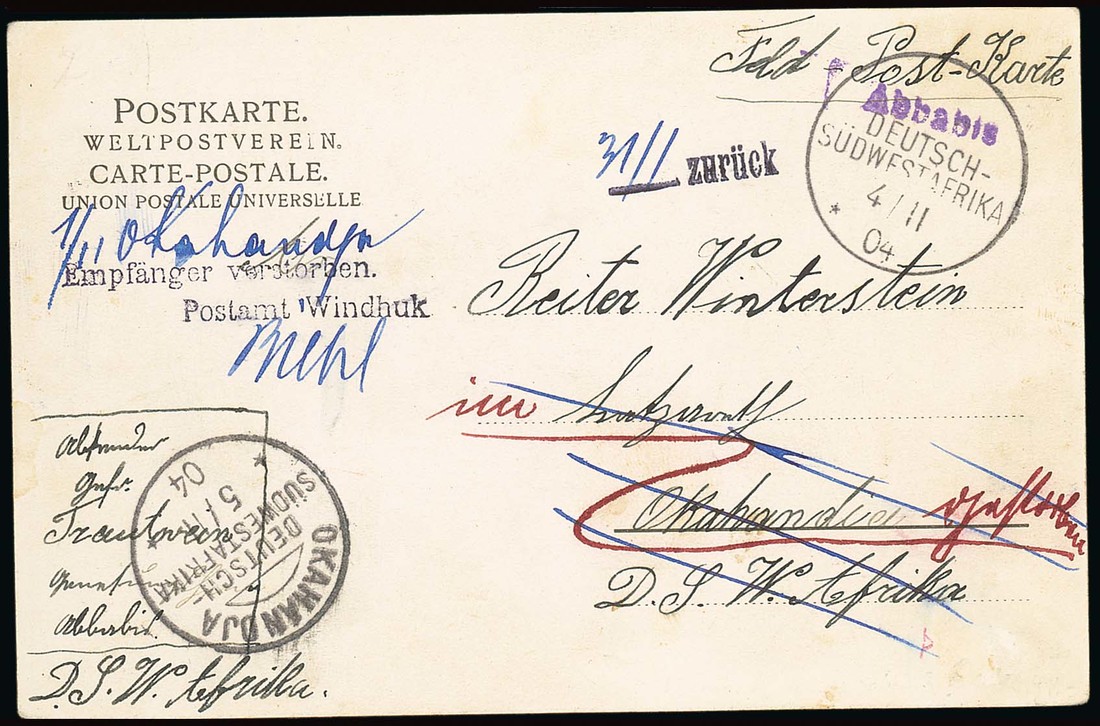 Feld-Post-Karte
POSTKARTE.
WELTPOSTVEREIN.
CARTE-POSTALE.
UNION POSTALE UNIVERSELLE
Abbabis
DEUTSCH-
SÜDWESTAFRIKA
4/II
04
31/1 zurück
1/11 Okahandja
Empfänger verstorben.
Postamt Windhuk
Reiter Winterstein
im Lazareth
Okahandja gestorben
D. S. W. Afrika
Absender
Gefr.
Trautwein
Abbabis.
D. S. W. Afrika.
OKAHANDJA
DEUTSCH-
SÜDWESTAFRIKA
5/11
04